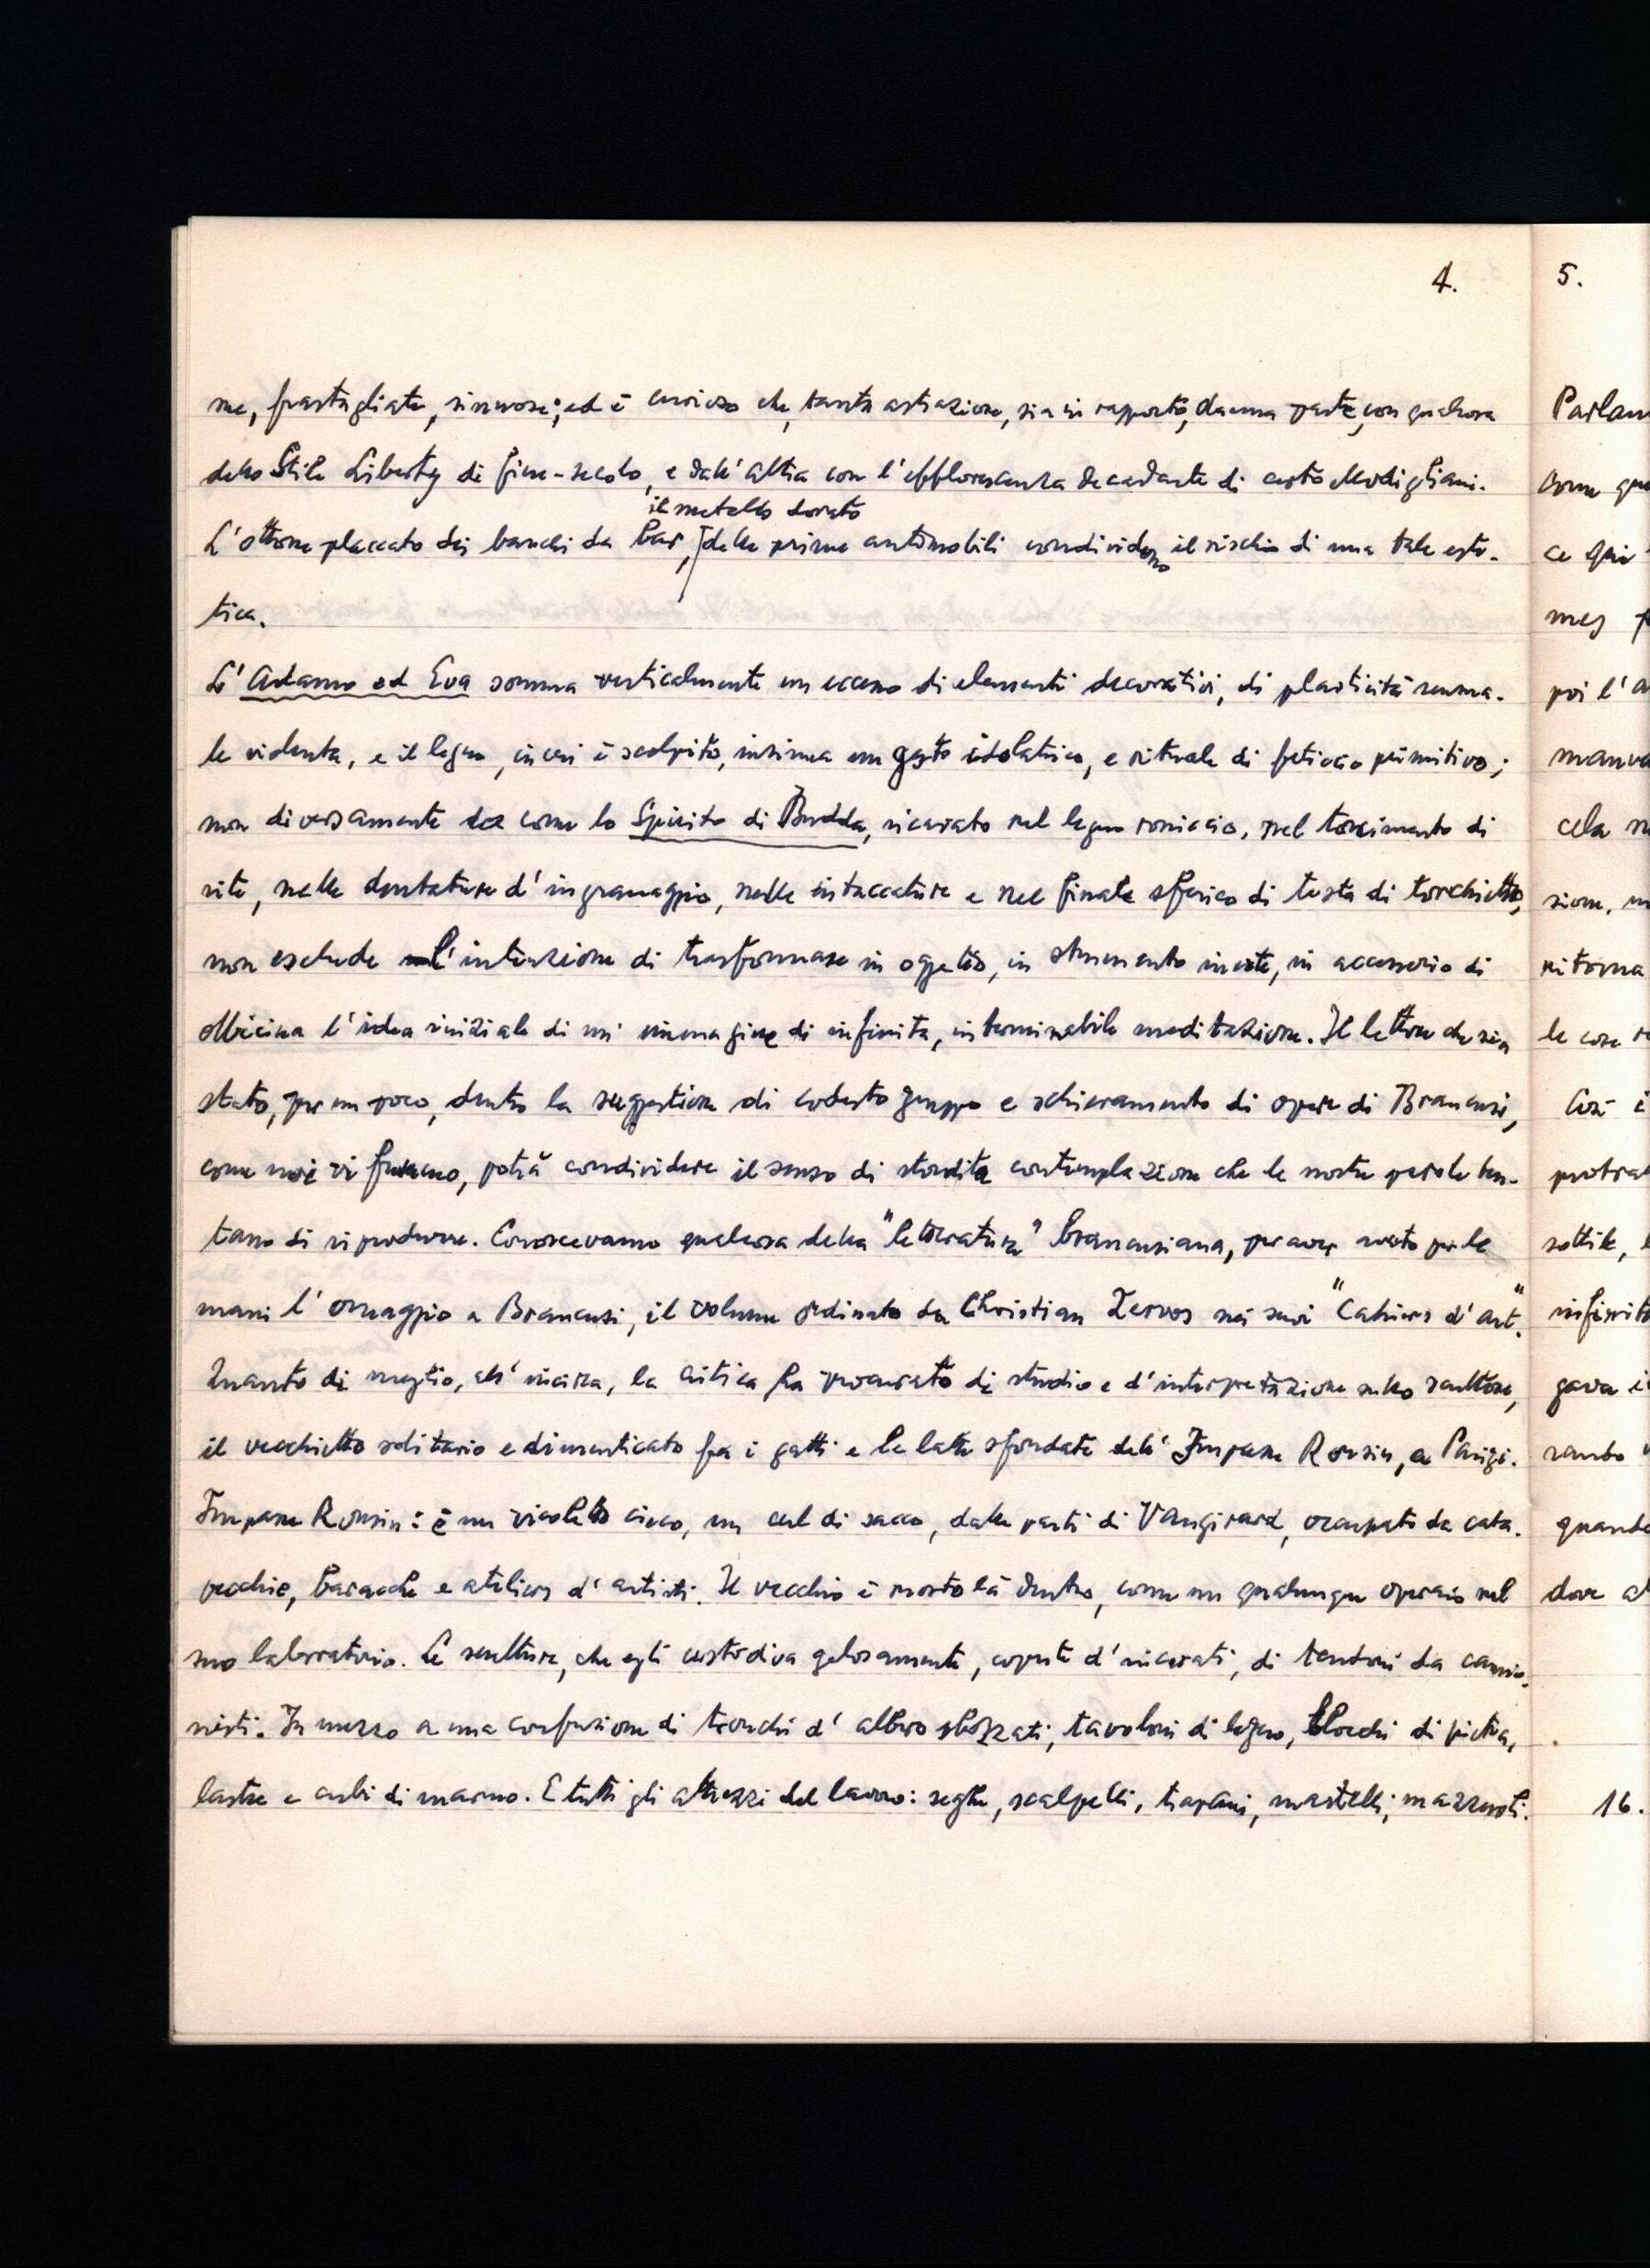 4.
me, frastagliate, sinuose; ed è curioso che, tanta astrazione, sia in rapporto, da una parte, con qualcosa
dello Stile Liberty di fine-secolo, e dall'altra con l'efflorescenza decadente di certo Modigliani.
il metallo dorato
L'ottone placcato dei banchi da bar, delle prime automobili condividono il rischio di una tale este-
tica.
L'Adamo ed Eva somma verticalmente un eccesso di elementi decorativi, di plasticità sensua-
le violenta, e il legno, in cui è scolpito, insinua un gesto idolatrico, e rituale di feticcio primitivo;
non diversamente come lo Spirito di Budda, ricavato nel legno massiccio, nel torcimento di
vite, nelle dentature d'ingranaggio, nelle intaccature e nel finale sferico di testa di torchietto,
non esclude l'intenzione di trasformare in oggetto, in strumento inerte, in accessorio di
officina l'idea iniziale di un'immagine di infinita, interminabile meditazione. Il lettore che sia
stato, per un poco, dentro la suggestione di codesto gruppo e schieramento di opere di Brancusi,
come noi vi fummo, potrà condividere il senso di stordita contemplazione che le nostre parole ten-
tano di riprodurre. Conoscevamo qualcosa della "letteratura" brancusiana, per aver avuto per le
mani l'omaggio a Brancusi, il volume ordinato da Christian Zervos nei suoi "Cahiers d'art".
Quanto di meglio, all'incirca, la critica ha procurato di studio e d'interpretazione sullo scultore,
il vecchietto solitario e dimenticato fra i gatti e le latte sfondate dell'Impasse Ronsin, a Parigi.
Impasse Ronsin: è un vicoletto cieco, un cul di sacco, dalle parti di Vaugirard, occupato da cata-
pecchie, baracche e ateliers d'artisti. Il vecchio è morto là dentro, come un qualunque operaio nel
suo laboratorio. Le sculture, che egli custodiva gelosamente, coperte d'incerati, di tendoni da camio-
nisti. In mezzo a una confusione di tronchi d'albero sbozzati, tavoloni di legno, blocchi di pietra,
lastre e cubi di marmo. E tutti gli attrezzi del lavoro: seghe, scalpelli, trapani, martelli, mazzuoli.
5.
Parlan
come qu
ce qui
mes
poi l'a
manua
cela
sione,
ritorna
le cose
Così è
protra
sottile,
infinit
gava
rando
quand
dove al
16.